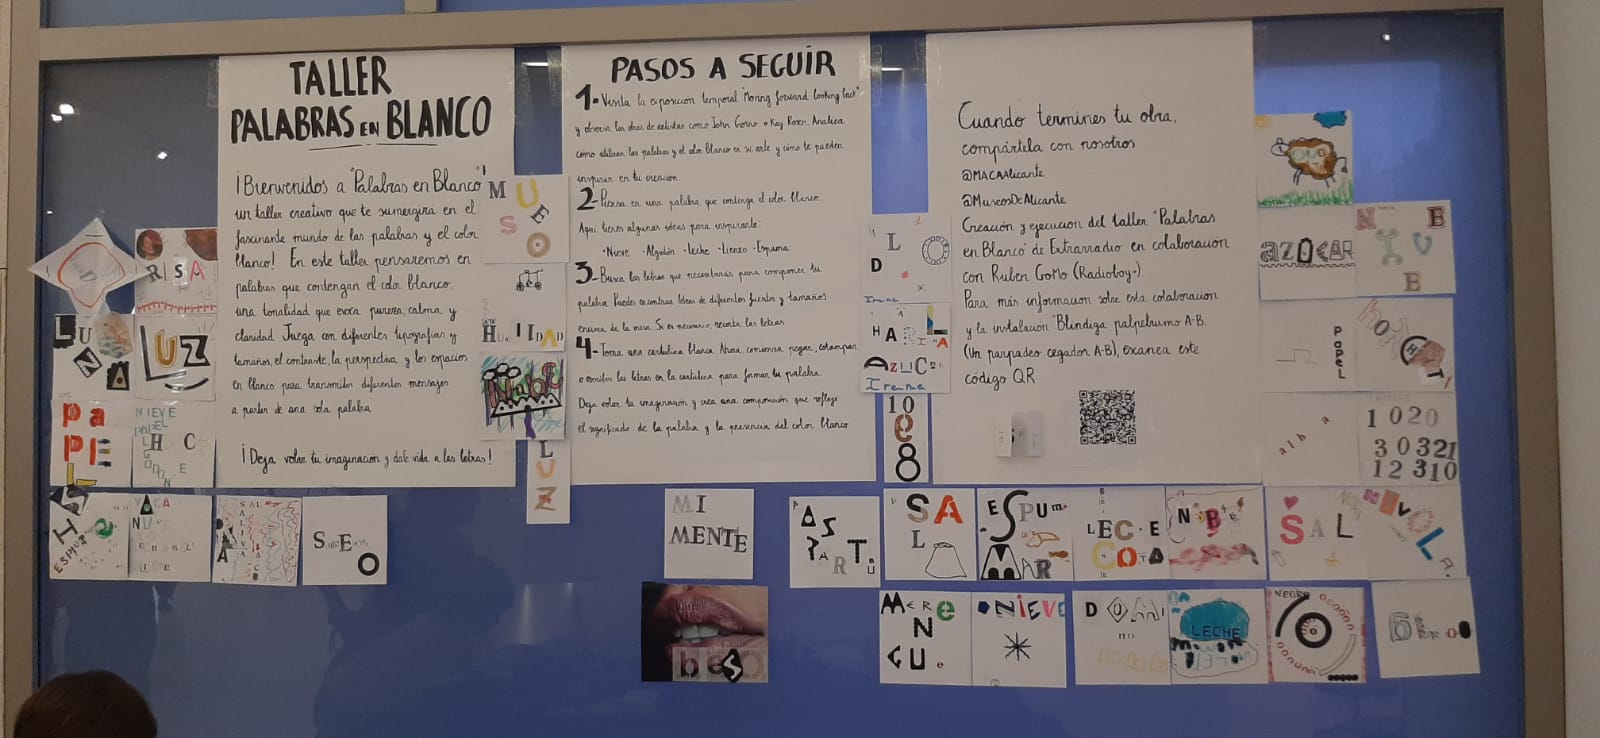 TALLER
PALABRAS EN BLANCO
¡Bienvenidos a "Palabras en Blanco"!
un taller creativo que te sumergira en el
fascinante mundo de las palabras y el color
blanco! En este taller, pensaremos en
palabras que contengan el color blanco,
una tonalidad que evoca pureza, calma y
claridad. Juega con diferentes tipografias y
tamaños, el contraste, la perspectiva y los espacios
en blanco para transmitir diferentes mensajes
a partir de una sola palabra.
¡Deja volar tu imaginación y dale vida a las letras!
PASOS A SEGUIR
1- Visita la exposición temporal "Moving forward looking back"
y observa las obras de artistas como John Giorno o Kay Rosen. Analiza
cómo utilizan las palabras y el color blanco en su arte y cómo te pueden
inspirar en tu creacion.
2- Piensa en una palabra que contenga el color blanco.
Aqui tienes algunas ideas para inspirarte:
·Nieve ·Algodón ·Leche ·Lienzo ·Espuma
3- Busca las letras que necesitarás para componer tu
palabra. Puedes encontrar letras de diferentes fuentes y tamaños
encima de la mesa. Si es necesario, recorta las letras
4- Toma una cartulina blanca. Ahora, comienza pegar, estampar
o escribir las letras en la cartulina para formar tu palabra.
Deja volar tu imaginación y crea una composición que refleje
el significado de la palabra y la presencia del color blanco.
Cuando termines tu obra,
compártela con nosotros
@MACAAlicante
@MuseosDeAlicante
Creación y ejecucion del taller "Palabras
en Blanco" de Extrarradio en colaboración
con Ruben Gomo (Radioboy+).
Para más informacion sobre esta colaboracion
y la instalación "Blindiga palpebrumo A-B,
(Un parpadeo cegador A-B), escanea este
código QR
MUSEO
RISA
LUNA
LUZ
HUMILDAD
NUBE
PaPEL
NIEVE
PAPEL
LUZ
ESPUMA
VACA
SAL
SALIVA
MI
MENTE
beso
L
D
Irene
HARINA
AZUCar
Irene
10
e
8
SAL
ESPUma
MAR
LECHE
COTA
NuBe
SAL
MERe
N
GU e
NIEVE
DOMI
no
LECHE
NEGRO
AZUCAR
NUBE
PAPEL
alba
1020
30321
12310